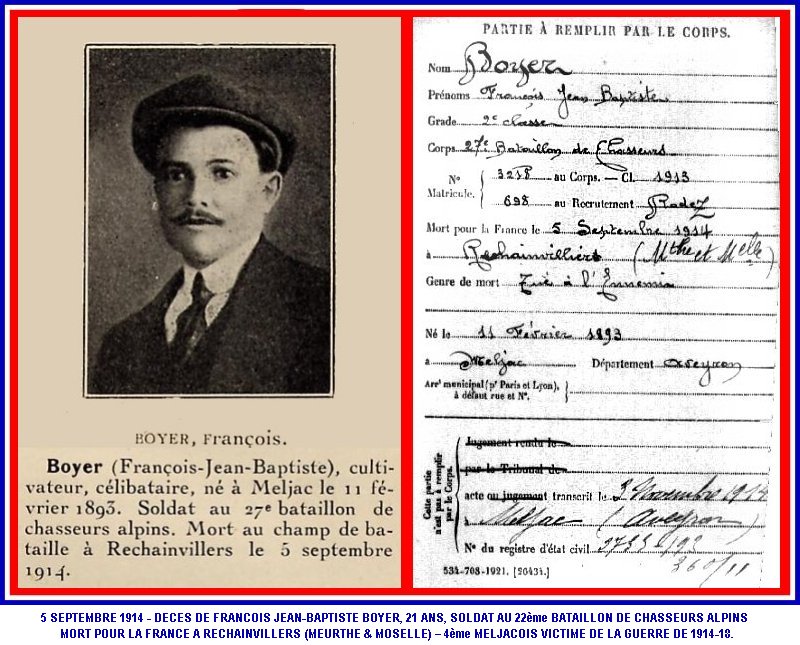 BOYER, François.
Boyer (François-Jean-Baptiste), culti-
vateur, célibataire, né à Meljac le 11 fé-
vrier 1893. Soldat au 27e bataillon de
chasseurs alpins. Mort au champ de ba-
taille à Rechainvillers le 5 septembre
1914.
PARTIE À REMPLIR PAR LE CORPS.
Nom Boyer
Prénoms François Jean Baptiste
Grade 2e classe
Corps 27e Bataillon de Chasseurs
No Matricule. 3218 au Corps. — Cl. 1913
698 au Recrutement Rodez
Mort pour la France le 5 Septembre 1914
à Rechainvillers (Mthe et Melle)
Genre de mort Tué à l'Ennemi
Né le 11 Février 1893
à Meljac Département Aveyron
Arrt municipal (pr Paris et Lyon),
à défaut rue et No.
Cette partie
n'est pas à remplir
par le Corps.
Jugement rendu le
par le Tribunal de
acte ou jugement transcrit le 2 Novembre 1914
à Meljac (Aveyron)
No du registre d'état civil
534-708-1921. [26434.]
5 SEPTEMBRE 1914 - DECES DE FRANCOIS JEAN-BAPTISTE BOYER, 21 ANS, SOLDAT AU 22ème BATAILLON DE CHASSEURS ALPINS
MORT POUR LA FRANCE A RECHAINVILLERS (MEURTHE & MOSELLE) – 4ème MELJACOIS VICTIME DE LA GUERRE DE 1914-18.